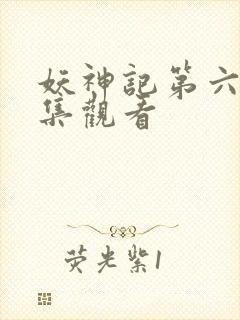 妖神記第六
集觀看
荧光紫1